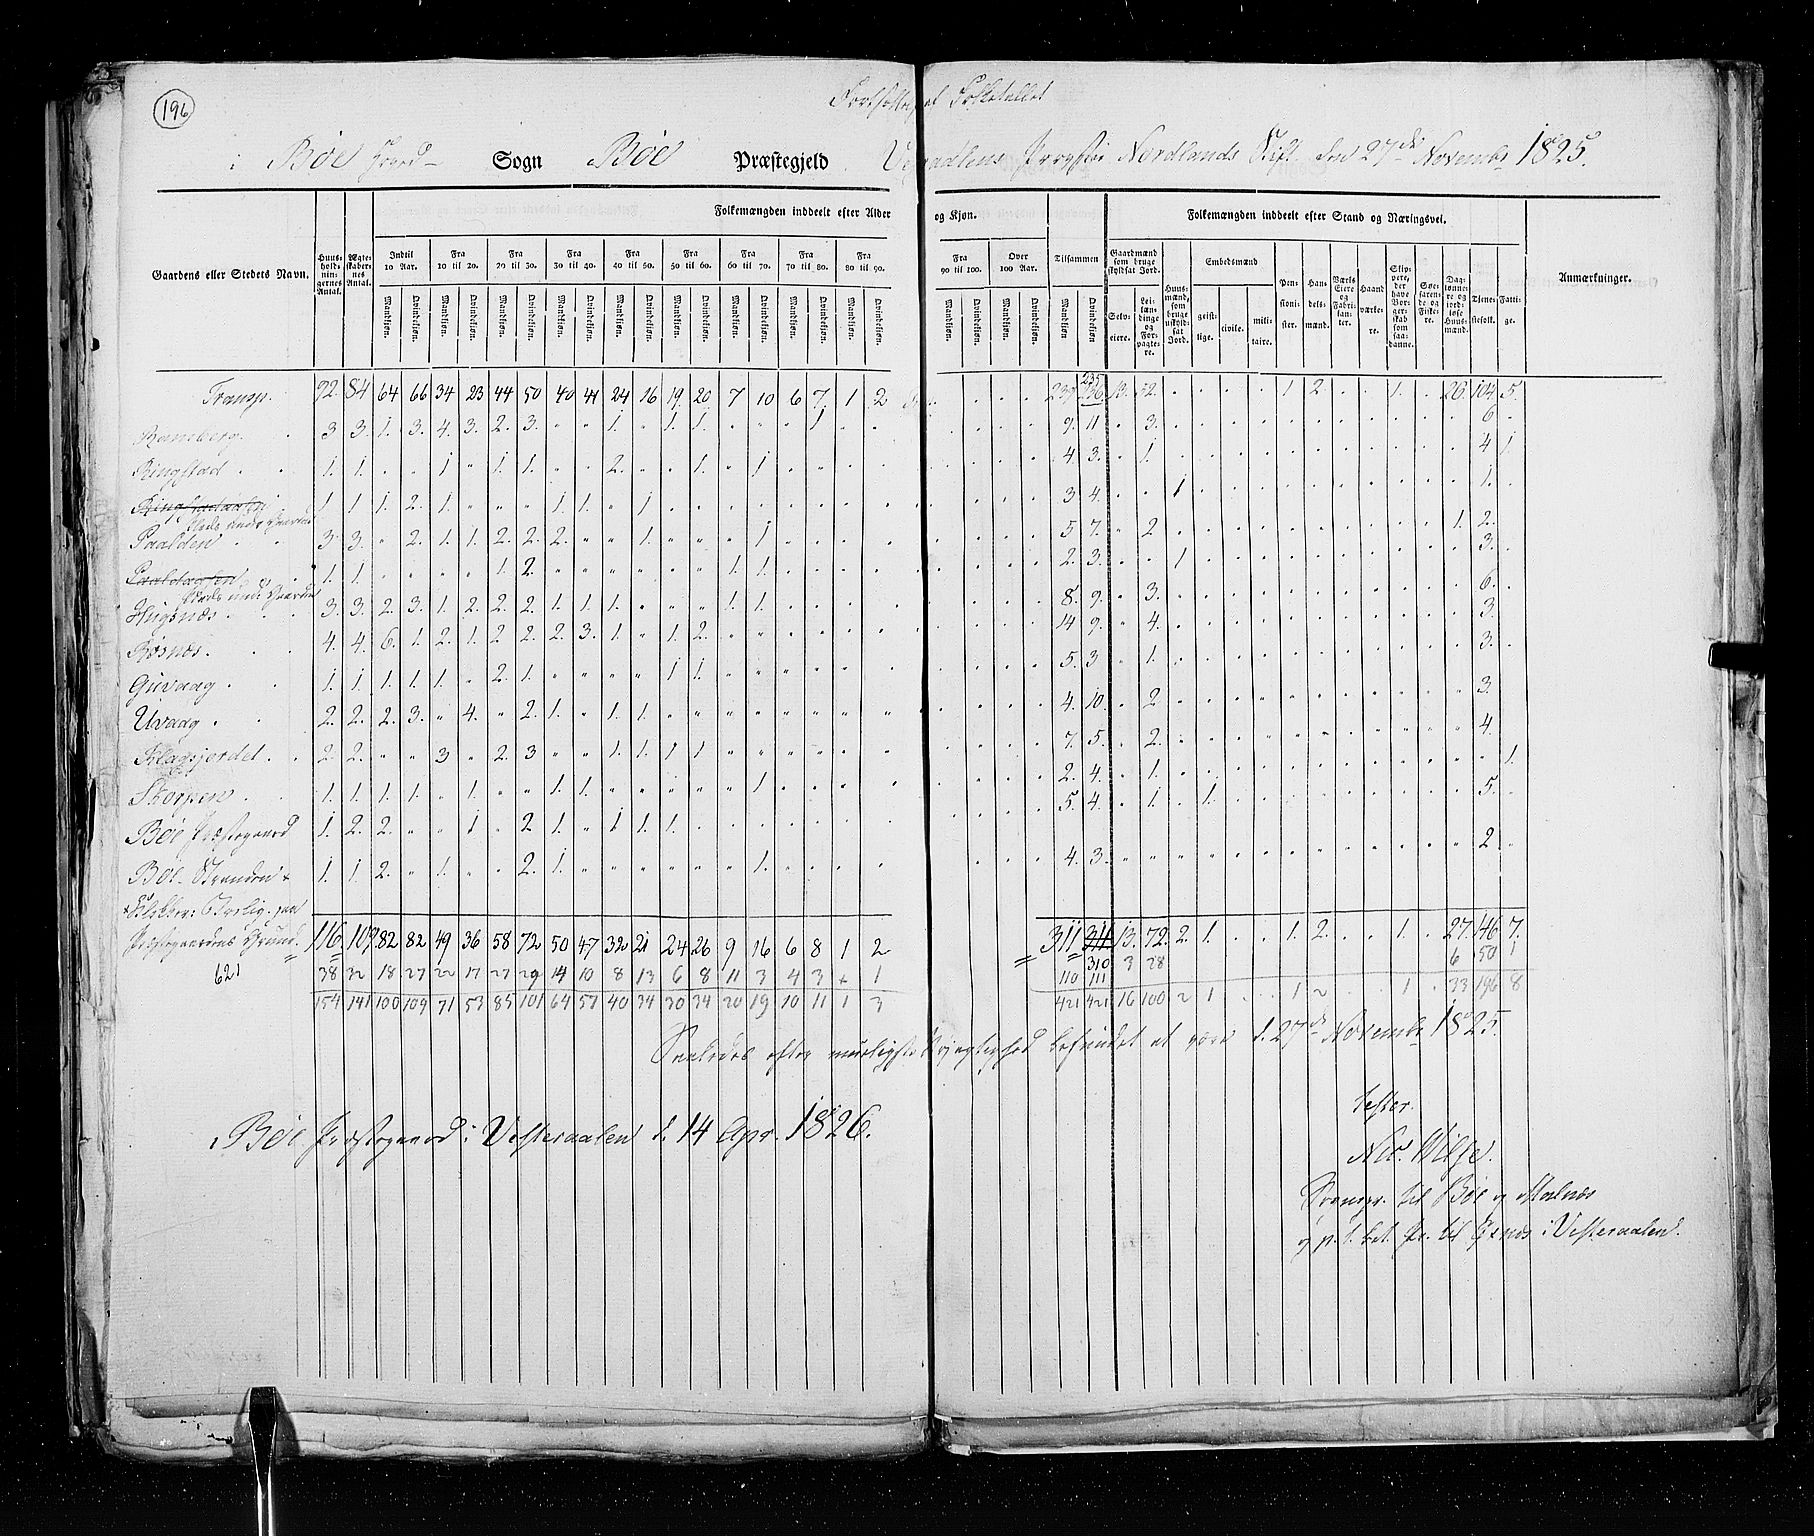 196
Folketallet
i Bøe Hoved- Sogn Bøe Præstegjeld Nordlands Stift den 27de Novembr 1825.
Gaardens eller Stedets Navn. Huusholdningernes Antal. Ægteskabernes Antal. Folkemængden inddeelt efter Alder og Kjøn. Folkemængden inddeelt efter Stand og Næringsvei. Anmærkninger.
Indtil 10 Aar. Fra 10 til 20. Fra 20 til 30. Fra 30 til 40. Fra 40 til 50. Fra 50 til 60. Fra 60 til 70. Fra 70 til 80. Fra 80 til 90. Fra 90 til 100. Over 100 Aar. Tilsammen
Gaardmænd som bruge skyldsat Jord. Selveiere. Leilændinge og Forpagtere. Huusmænd, som bruge uskyldsat Jord. Embedsmænd geistlige. civile. militaire. Pensionister. Handelsmænd. Værks Eiere og Fabrikanter. Haandværkere. Skippere, der have Borgerskab som saadanne. Søefarende og Fiskere. Daglønnere og jordløse Huusmænd. Tjenestefolk. Fattige.
Mandkjøn. Qvindekjøn. Mandkjøn. Qvindekjøn. Mandkjøn. Qvindekjøn. Mandkjøn. Qvindekjøn. Mandkjøn. Qvindekjøn. Mandkjøn. Qvindekjøn. Mandkjøn. Qvindekjøn. Mandkjøn. Qvindekjøn. Mandkjøn. Qvindekjøn. Mandkjøn. Qvindekjøn. Mandkjøn. Qvindekjøn. Mandkjøn. Qvindekjøn.
Transp. 92. 84 64 66 34 23 44 50 40 41 24 16 19 20 7 10 6 7 1 2 237 235 13. 52. 1 2 1. 26. 104. 5.
Ramberg. 3 3. 1. 3. 4. 3. 2. 3. 1. 1. 1. 1 9. 11 3. 6
Ringstad 1. 1. 1 1. 1. 2. 1. 1. 4. 3. 1. 4 1.
1 1 1. 2. 1. 1. 1. 1 3 4. 1 1.
Plads under Gaarden
Paalden 3. 3. 2. 1. 1. 2. 2. 2. 1. 1. 5 7. 2 1. 2.
1. 1. 1. 2. 1. 1. 2. 3. 1 3.
Plads under Gaarden
Hugsnæs 3. 3. 2. 3. 1. 2. 2. 2. 1. 1. 1. 1. 1. 8. 9. 3. 6.
Røsnæs. 4. 4. 6. 1. 2. 1. 2 2. 2. 3. 1. 1. 2. 14 9. 4. 3.
Guvaag 1. 1. 1. 1. 1. 2. 1. 1 1. 5. 3 1. 3.
Uvaag 2. 2. 2. 3. 4. 2. 1. 1. 1. 4. 10. 2 3.
Klagsjordet. 2. 2. 3 2. 3 1. 1. 1 1 7. 5. 2. 4.
Skorpen 1. 1. 1. 1. 1. 1. 1. 1 2. 4. 1. 1.
Bøe Præstegaard 1. 2. 2. 1 2. 1. 1 1. 1. 5. 4. 1. 1. 5.
Bøe Stranden 1. 1. 2. 1. 2. 1. 1. 4. 3. 2
Præstegaardens Grund. 116. 109 82 82 49 36 58 72 50 47 32 21 24 26 9 16 6 8 1 2 311 311 13. 72. 2. 1. 1. 2. 1. 27. 146. 7.
310
621 38 32 18 27 22 17 27 29 14 10 8 13 6 8 11 3 4 3 + 1 110 111 3 28 6 50 1
154 141 100 109 71 53 85 101 64 57 40 34 30 34 20 19 10 11 1 3 421 421 16 100 2 1 1 2 1 33 196 8
Saaledes efter mueligste Nøjagtighed befundet at være d. 27de Novembr 1825.
Bøe Præstegaard i Vesteraalen d. 14 Apr. 1826.
tester.
Nic. Wilse.
Sognepr. til Bøe og Malnæs
i Vesteraalen.